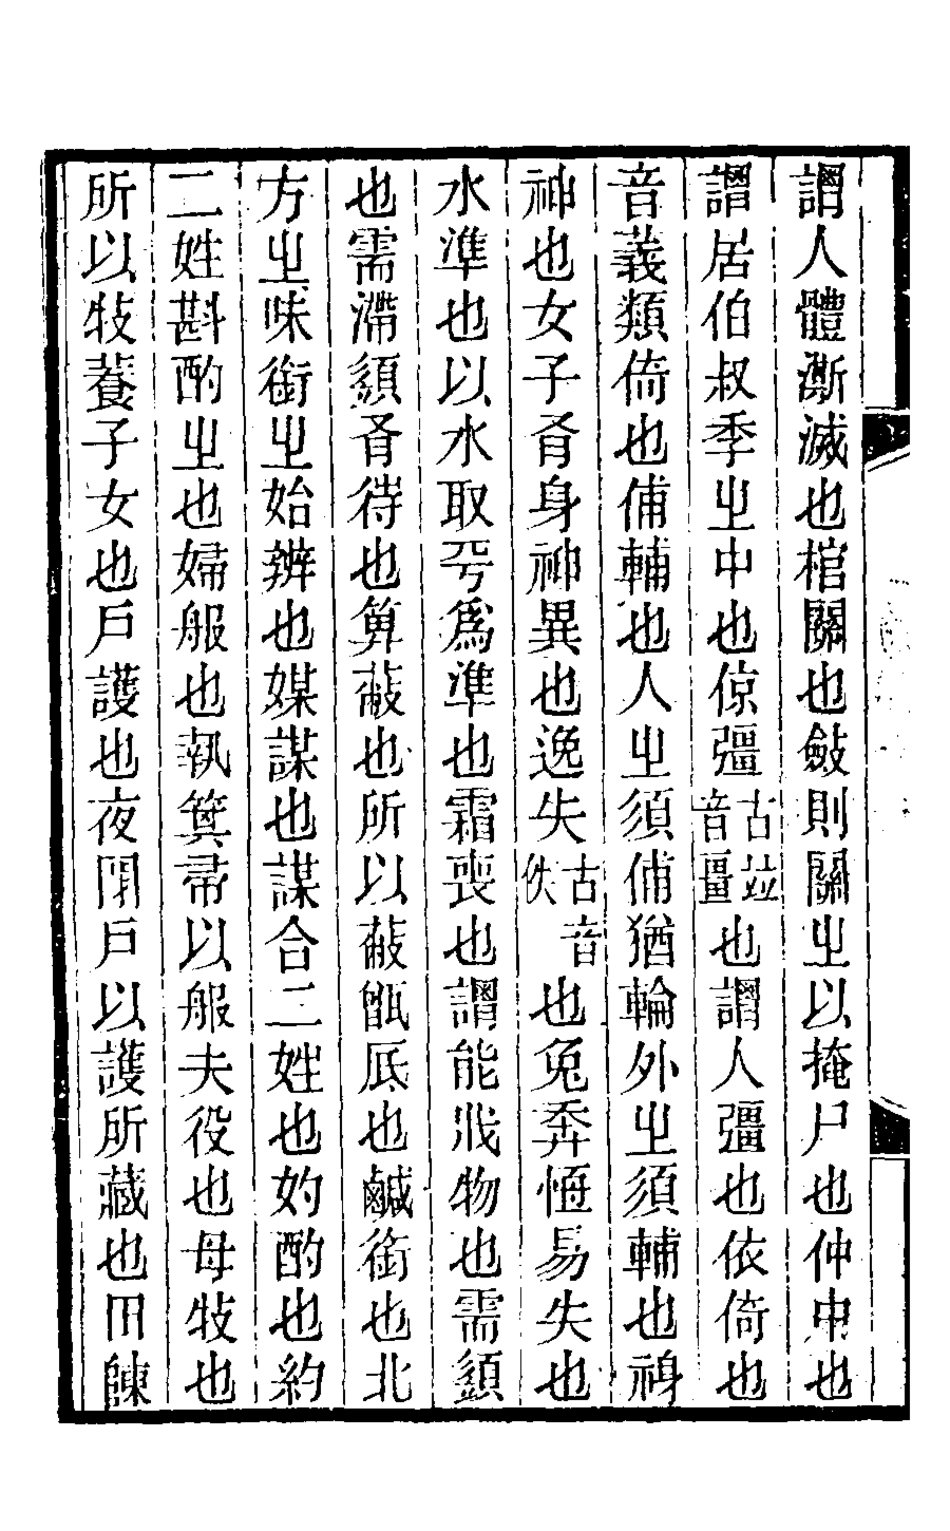 謂人體澌滅也棺關也斂則關㞢以掩尸也仲中也
謂居伯叔季㞢中也倞彊古竝音畺也謂人彊也依倚也
音義類倚也俌輔也人㞢須俌猶輪外㞢須輔也䄕
神也女子肻身神異也逸失古音佚也兔奔㤧易失也
水準也以水取平爲準也霜喪也謂能戕物也需須
也需滯須肻待也箅蔽也所以蔽甑底也鹹銜也北
方㞢味銜㞢始辦也媒謀也謀合二姓也妁酌也約
二姓斟酌㞢也婦服也執箕帚以服夫役也母牧也
所以牧養子女也戶護也夜閉戶以護所藏也田敶